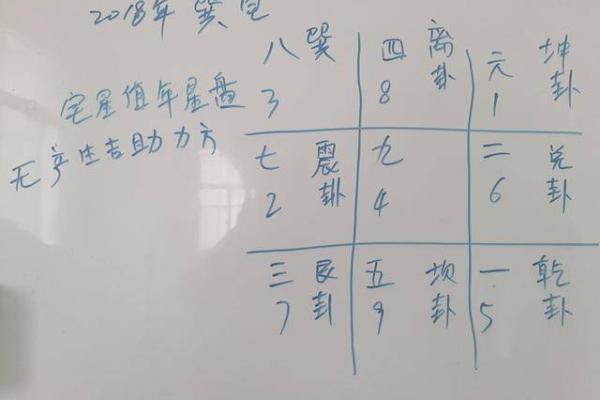 2018年 巽宅
宅星值年星盘
无产生吉助力方
八 巽 四 离卦 六 坤卦
3 8 1
七 震卦 九 二 兑卦
2 4 6
三 艮卦 五 坎卦 一 乾卦
7 9 5